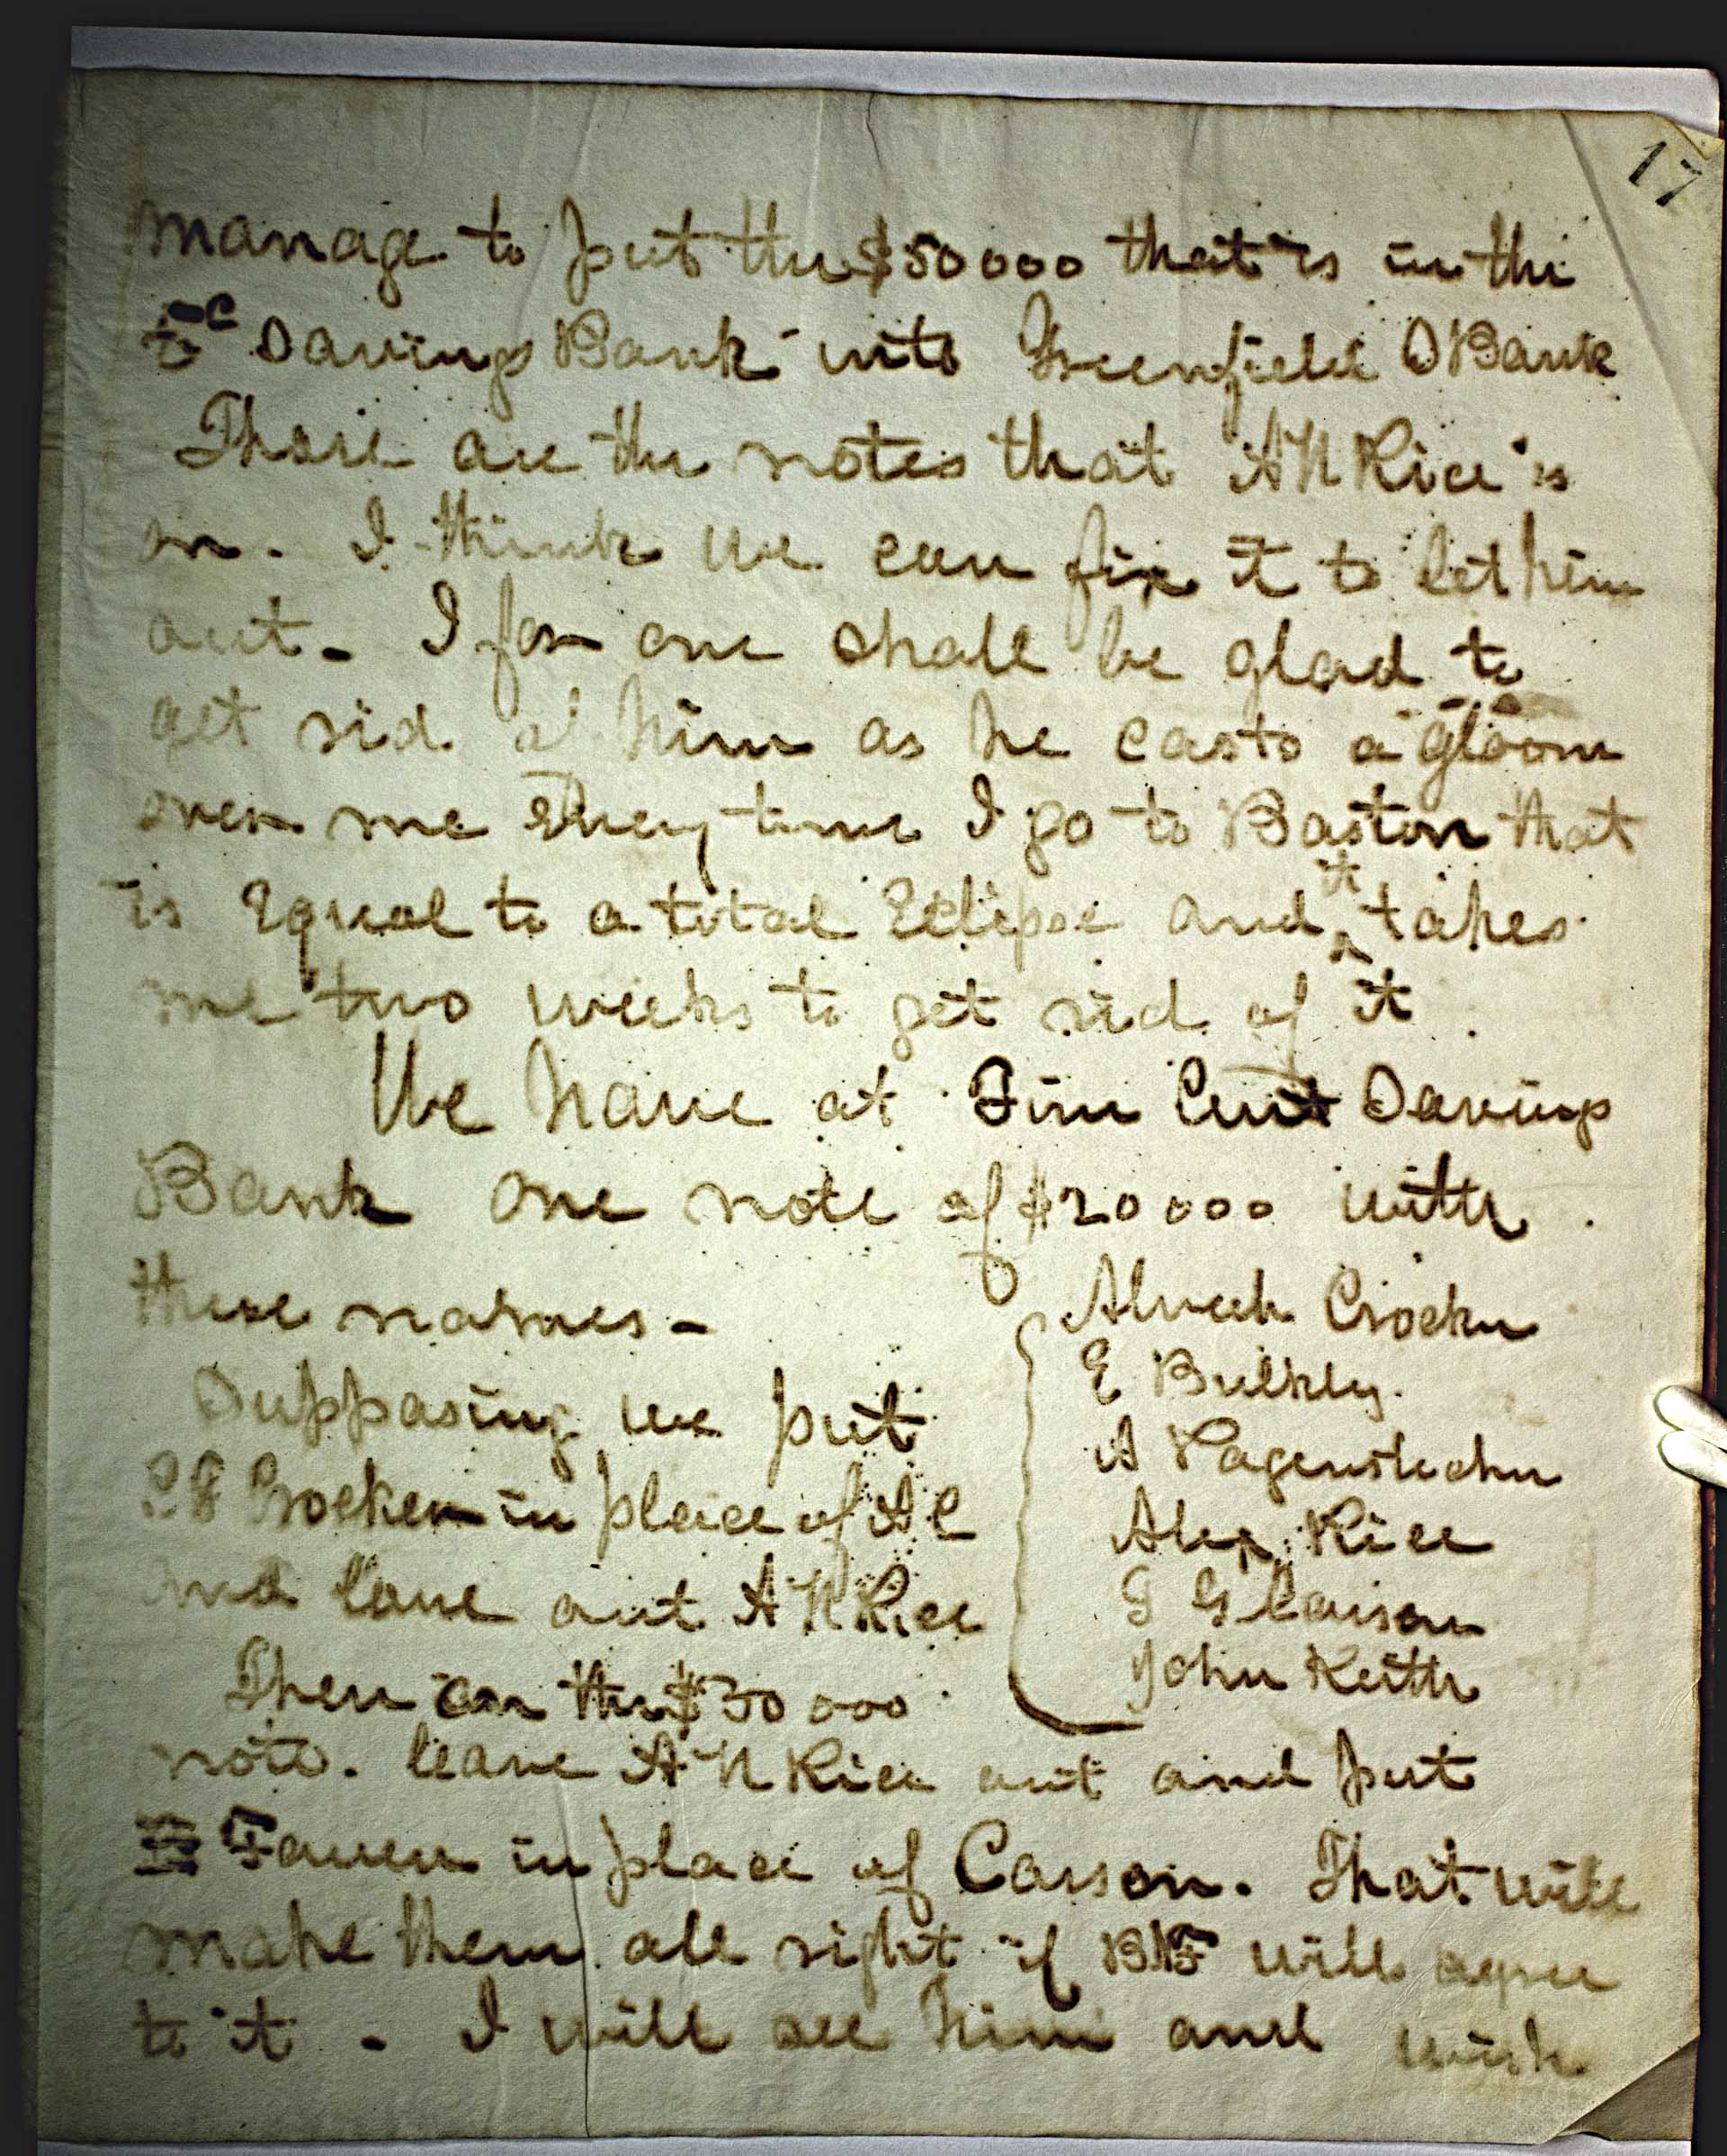 17
manage to put the $50000 that is in the
5c Savings Bank into Greenfield S Bank
These are the notes that A H Rice is
on. I think we can fix it to let him
out - I for one shall be glad to
get rid of him as he casts a gloom
over me every time I go to Boston that
is equal to a total Eclipse and it takes
me two weeks to get rid of it.
We have at Five Cent Savings
Bank one note of $20000 with
these names -
Alvah Crocker
E Bulkly.
A Pagenstecher
Alex. Rice
T G Carson
John Keith
Supposing we put
C F Crocker in place of A C
and leave out A H Rice
Then on the $30000
note. leave A H Rice out and put
Farren in place of Carson. That will
make them all right if BNF will agree
to it - I will see him and wish